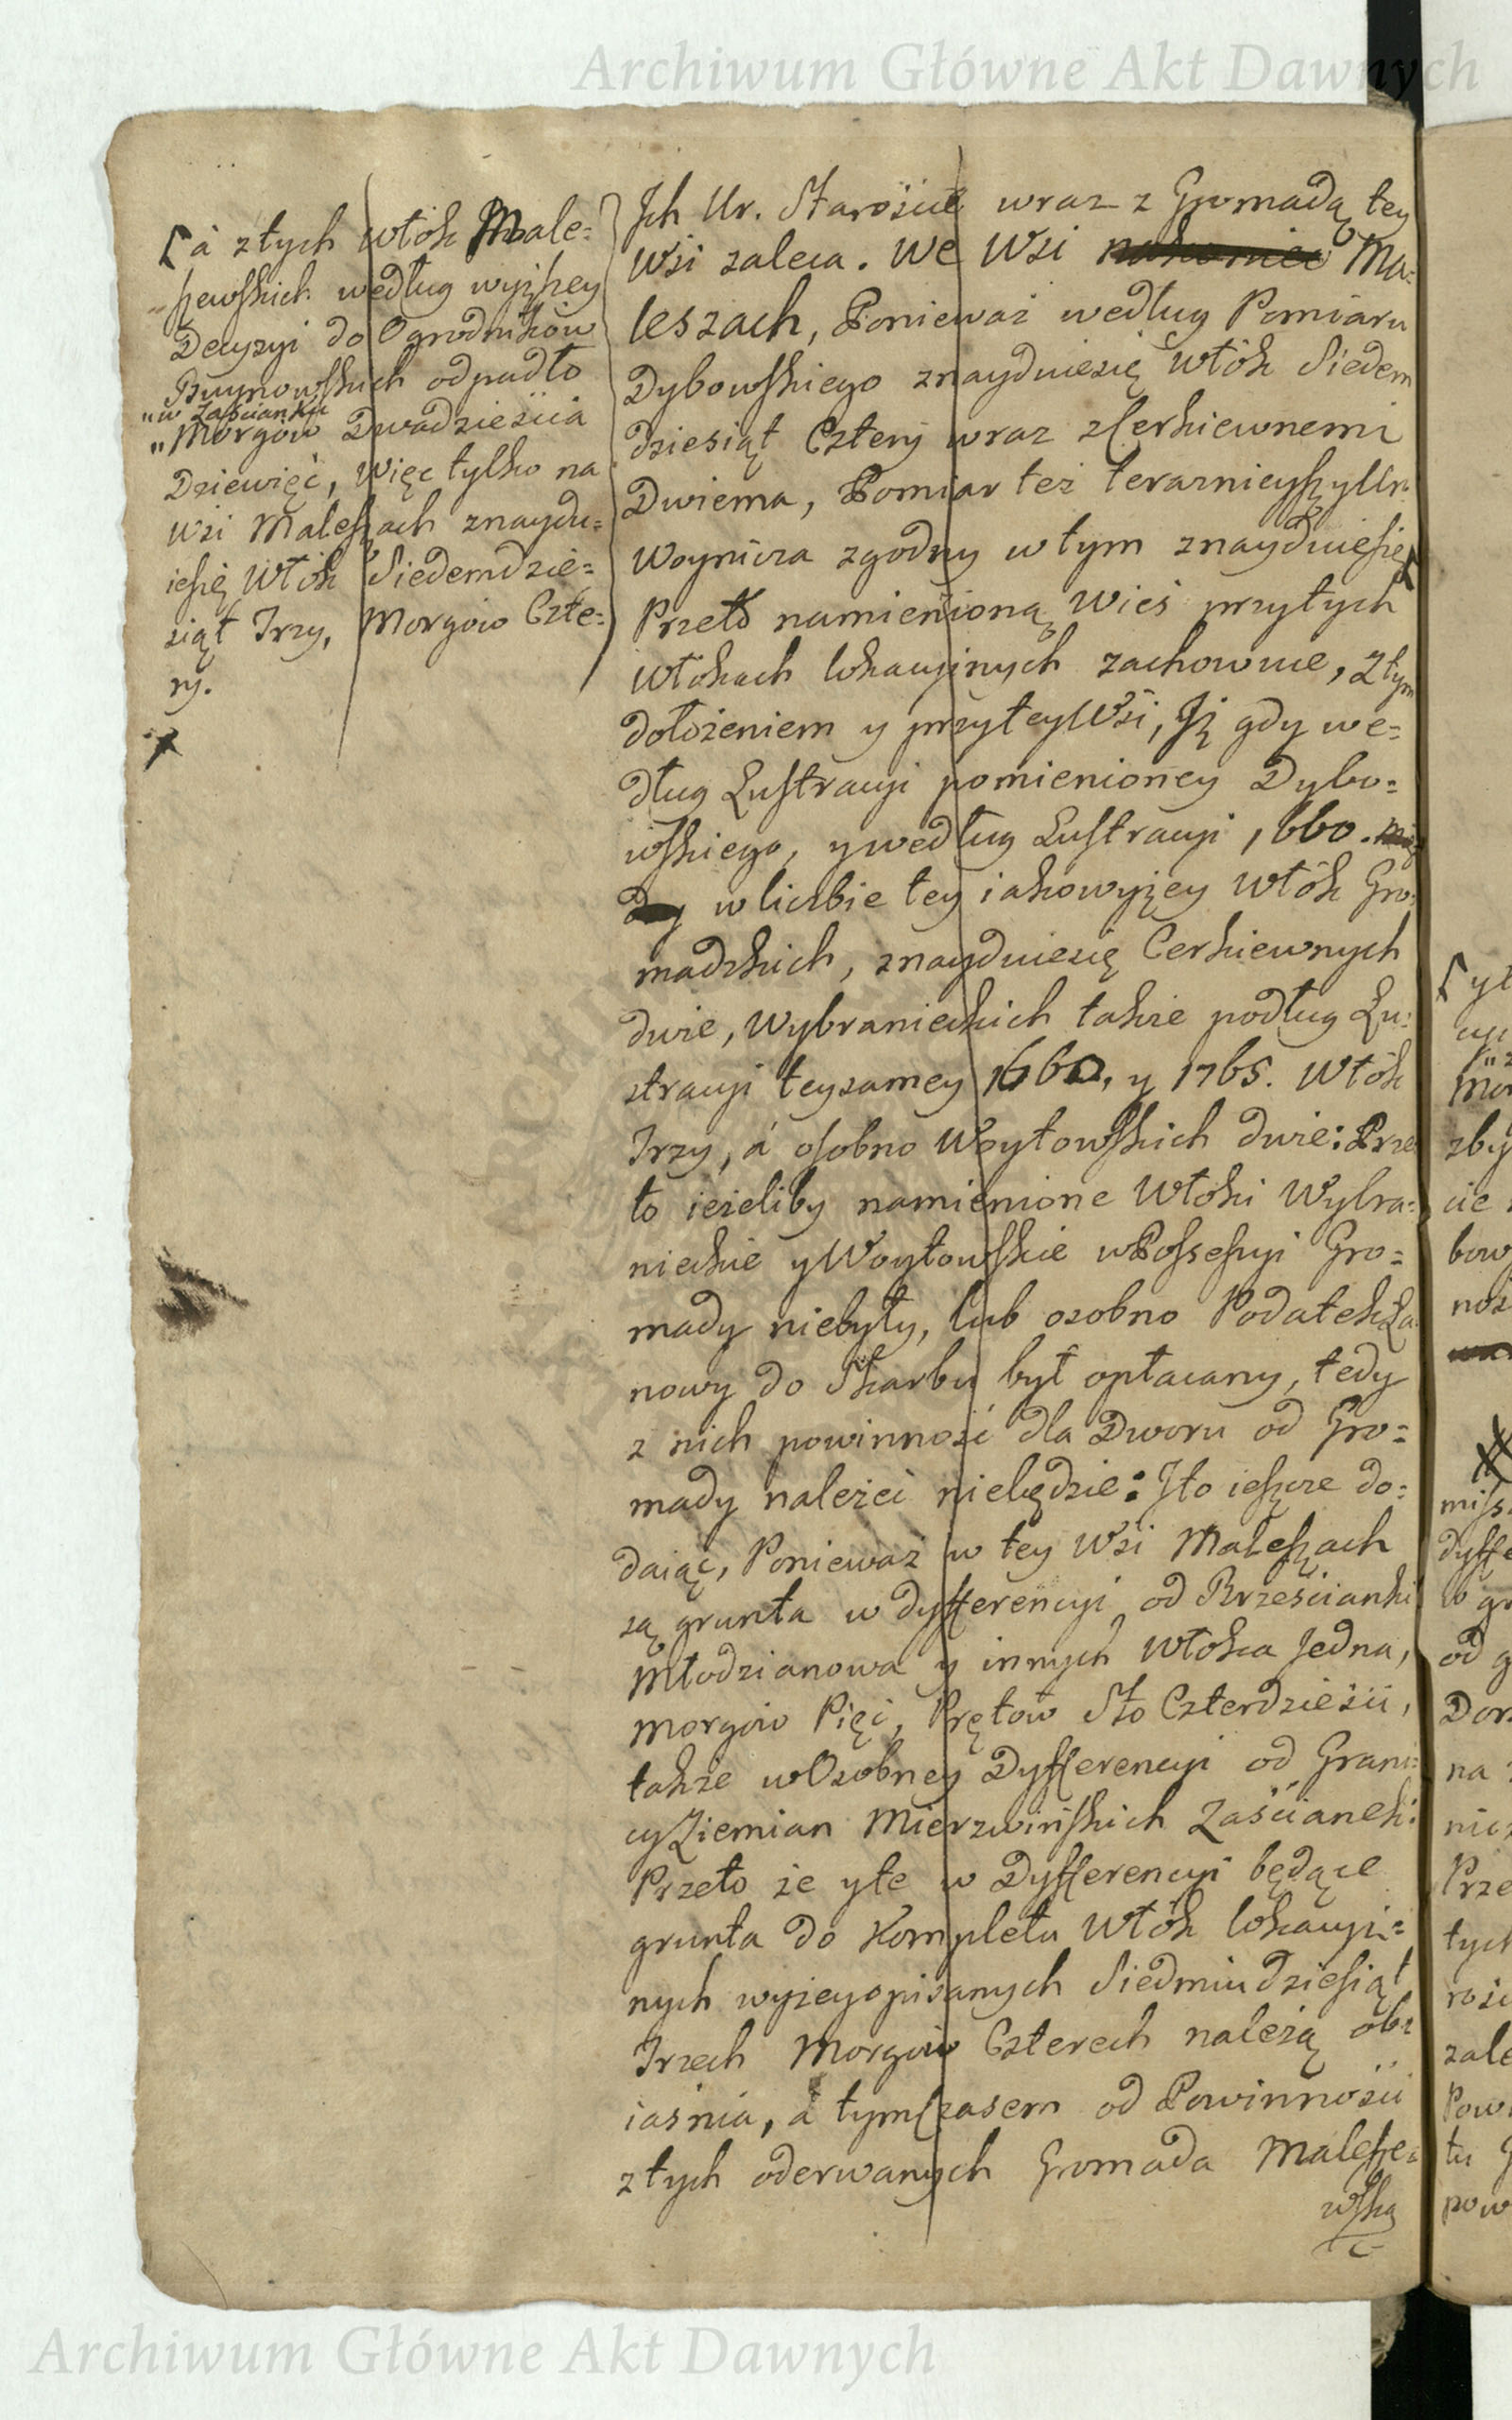 Archiwum Główne Akt Dawnych
[a ztych włók Male=
szewskich według wyższey
Decyzyi do Ogrodników
odpadło
"w Zaścianku
"Morgów Dwadzieścia
Dziewięć, więc tylko na
wsi Maleszach znaydu=
iesię Włók Siedemdzie=
siąt Trzy, Morgów Czte=
ry.
Ich Ur. Staroście wraz z Gromadą tey
Wsi zaleca. We Wsi nakoniec Ma=
leszach, Ponieważ według Pomiaru
Dybowskiego znayduiesię włók Siedem
dziesiąt Cztery wraz zCerkiewnemi
Dwiema, Pomiar też teraznieyszy Ur.
Woynicza zgodny wtym znayduiesię[
Przeto namienioną Wieś przytych
Włókach lokacyinych zachowuie, Ztym
dołożeniem y przyteyWsi, Iż gdy we=
dług Lustracyi pomienioney Dybo=
wskiego, ywedług Lustracyi 1660. mię
dzy wliczbie tey iakowyżey Włók Gro=
madzkich, znayduiesię Cerkiewnych
dwie, Wybranieckich także podług Lu=
stracyi teysamey 1660, y 1765. Włók
Trzy, á osobno Woytowskich dwie: Prze
to ieżeliby namienione Włóki Wybra=
nieckie yWoytowskie wPossessyi Gro=
mady niebyły, lub osobno PodatekŁa
nowy do Skarbu był opłacany, tedy
z nich powinność dla Dworu od Gro=
mady należeć niebędzie: Ito ieszcze do=
daiąc, Ponieważ w tey Wsi Maleszach
są grunta w dyfferencyi od Brześcianki
Młodzianowa y innych Włóka Jedna,
Morgów Pięć, Prętów Sto Czterdzieści,
także wOsobney Dyfferencyi od Grani=
cyZiemian Mierzwińskich Zaścianek:
Przeto że yte w Dyfferencyi będące
grunta do Kompletu Włók lokacyi=
nych wyżeyopisanych Siedmiudziesiąt
Trzech Morgów Czterech należą obi
iaśnia, a tymCzasem od Powinności
ztych oderwanych Gromada Malesze=
wska
Archiwum Główne Akt Dawnych